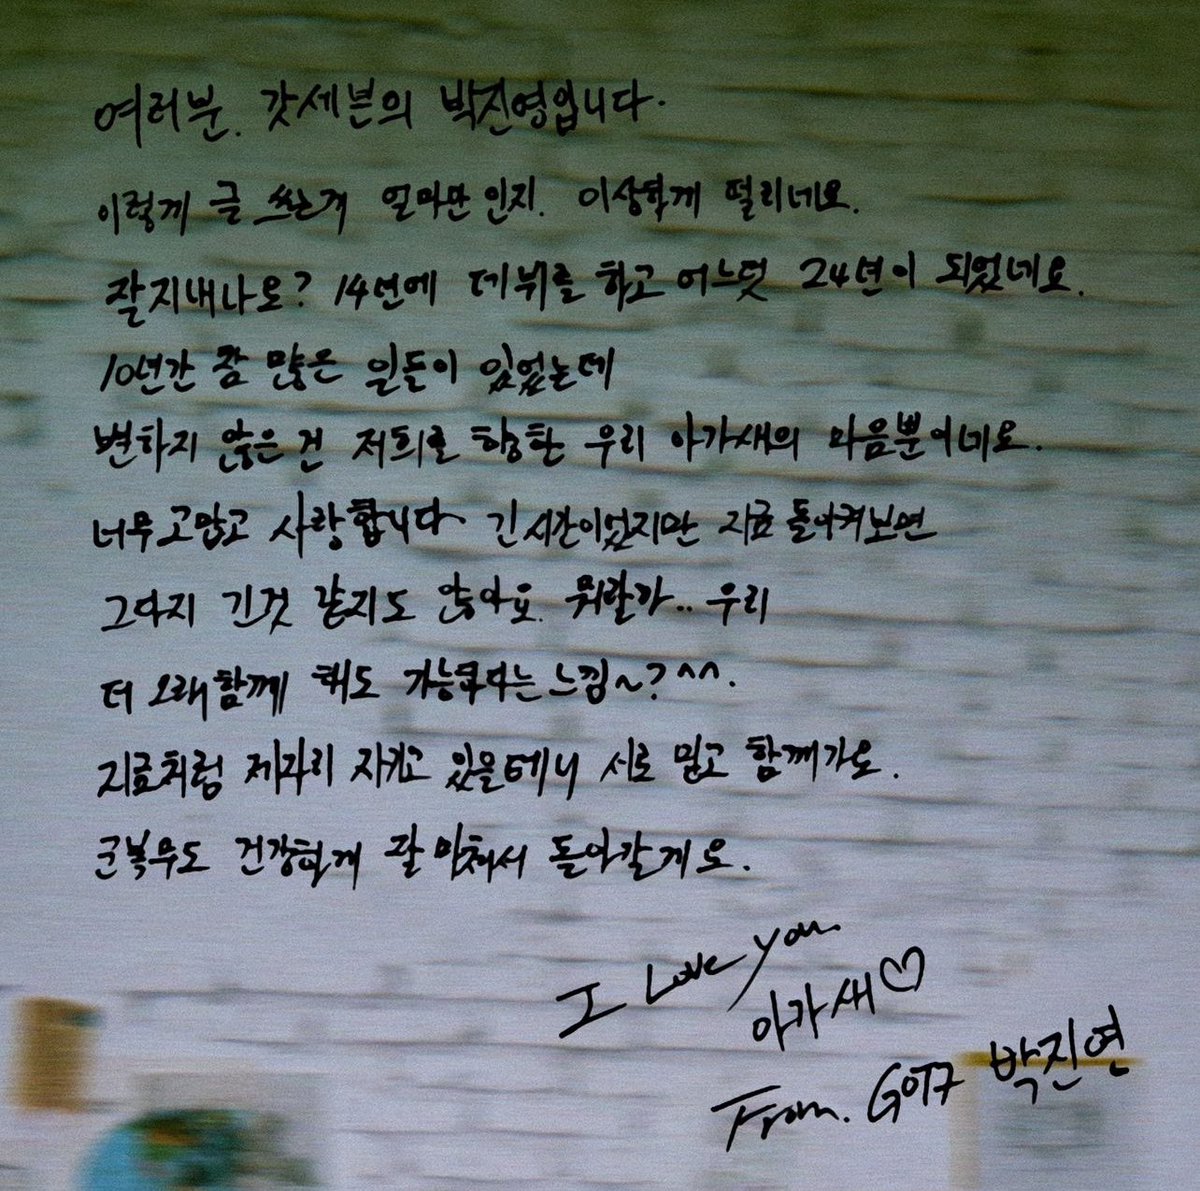 여러분. 갓세븐의 박진영입니다.
이렇게 글 쓰는게 얼마만인지. 이상하게 떨리네요.
잘지내나요? 14년에 데뷔를 하고 어느덧 24년이 되었네요.
10년간 참 많은 일들이 있었는데
변하지 않은 건 저희로 향한 우리 아가새의 마음뿐이네요.
너무 고맙고 사랑합니다 긴 시간이었지만 지금 돌이켜보면
그다지 긴것 같지도 않아요. 뭐랄까.. 우리
더 오래 함께 해도 가능하다는 느낌~? ^^.
지금처럼 제자리 지키고 있을테니 서로 믿고 함께가요.
군복무도 건강하게 잘 마쳐서 돌아갈게요.
I Love you.
아가새♡
From. GOT7 박진영